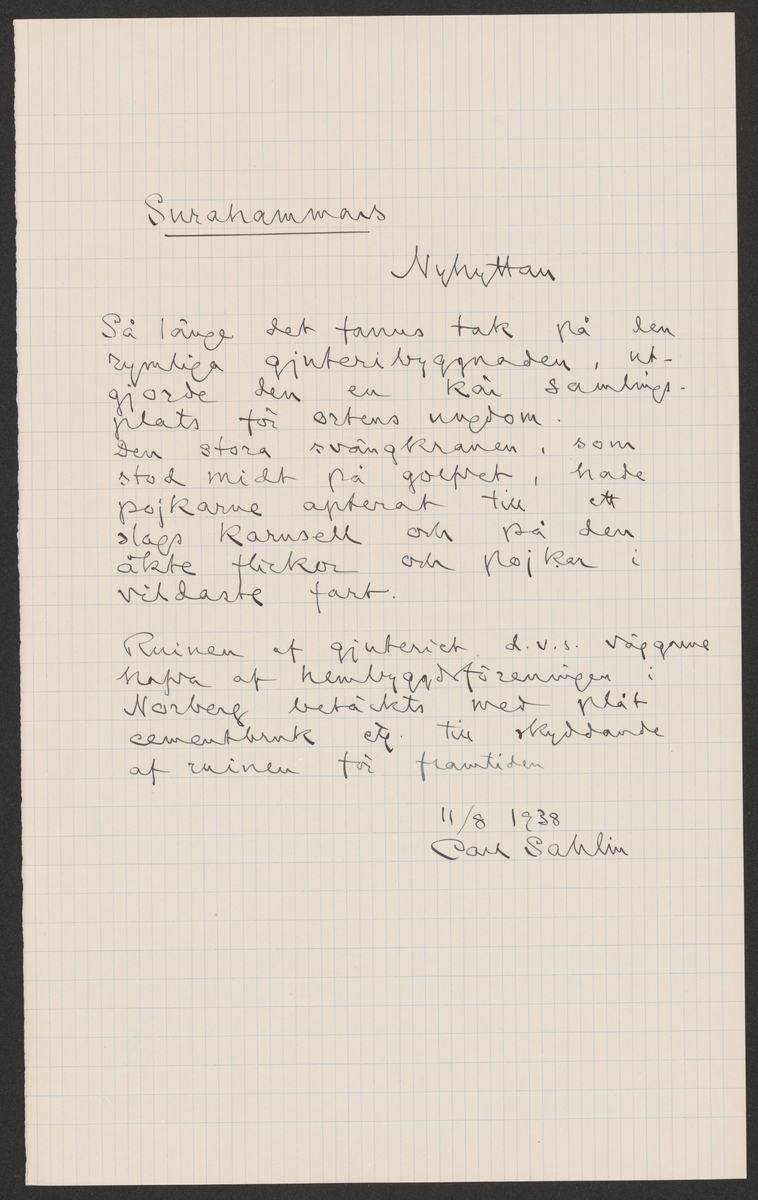 Surahammars
Nyhyttan
Så länge det fanns tak på den
rymliga gjuteribyggnaden, ut-
gjorde den en kär samlings-
plats för ortens ungdom.
Den stora svängkranen, som
stod midt på golfvet, hade
pojkarne apterat till ett
slags karusell och på den
åkte flickor och pojkar i
vildaste fart.
Ruinen af gjuteriet d.v.s. väggarne
hafva af hembygdsföreningen i
Norberg betäckts med plåt
cementbruk etc. till skyddande
af ruinen för framtiden
11/8 1938
Carl Sahlin